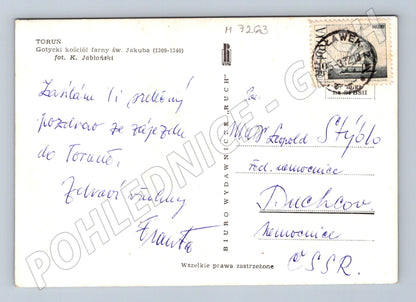 TORUŃ
Gotycki kościół farny św. Jakuba (1309-1340)
fot. K. Jabłoński
M 7263
Zasílám Ti srdečný
pozdrav ze zájezdu
do Toruně.
Zdraví
Franta
BIURO WYDAWNICZE „RUCH"
Wszelkie prawa zastrzeżone
POLSKA
MUDr Leopold Stýblo
řed. nemocnice
Duchcov
Nemocnice
ČSSR.
POHLEDNICE - G